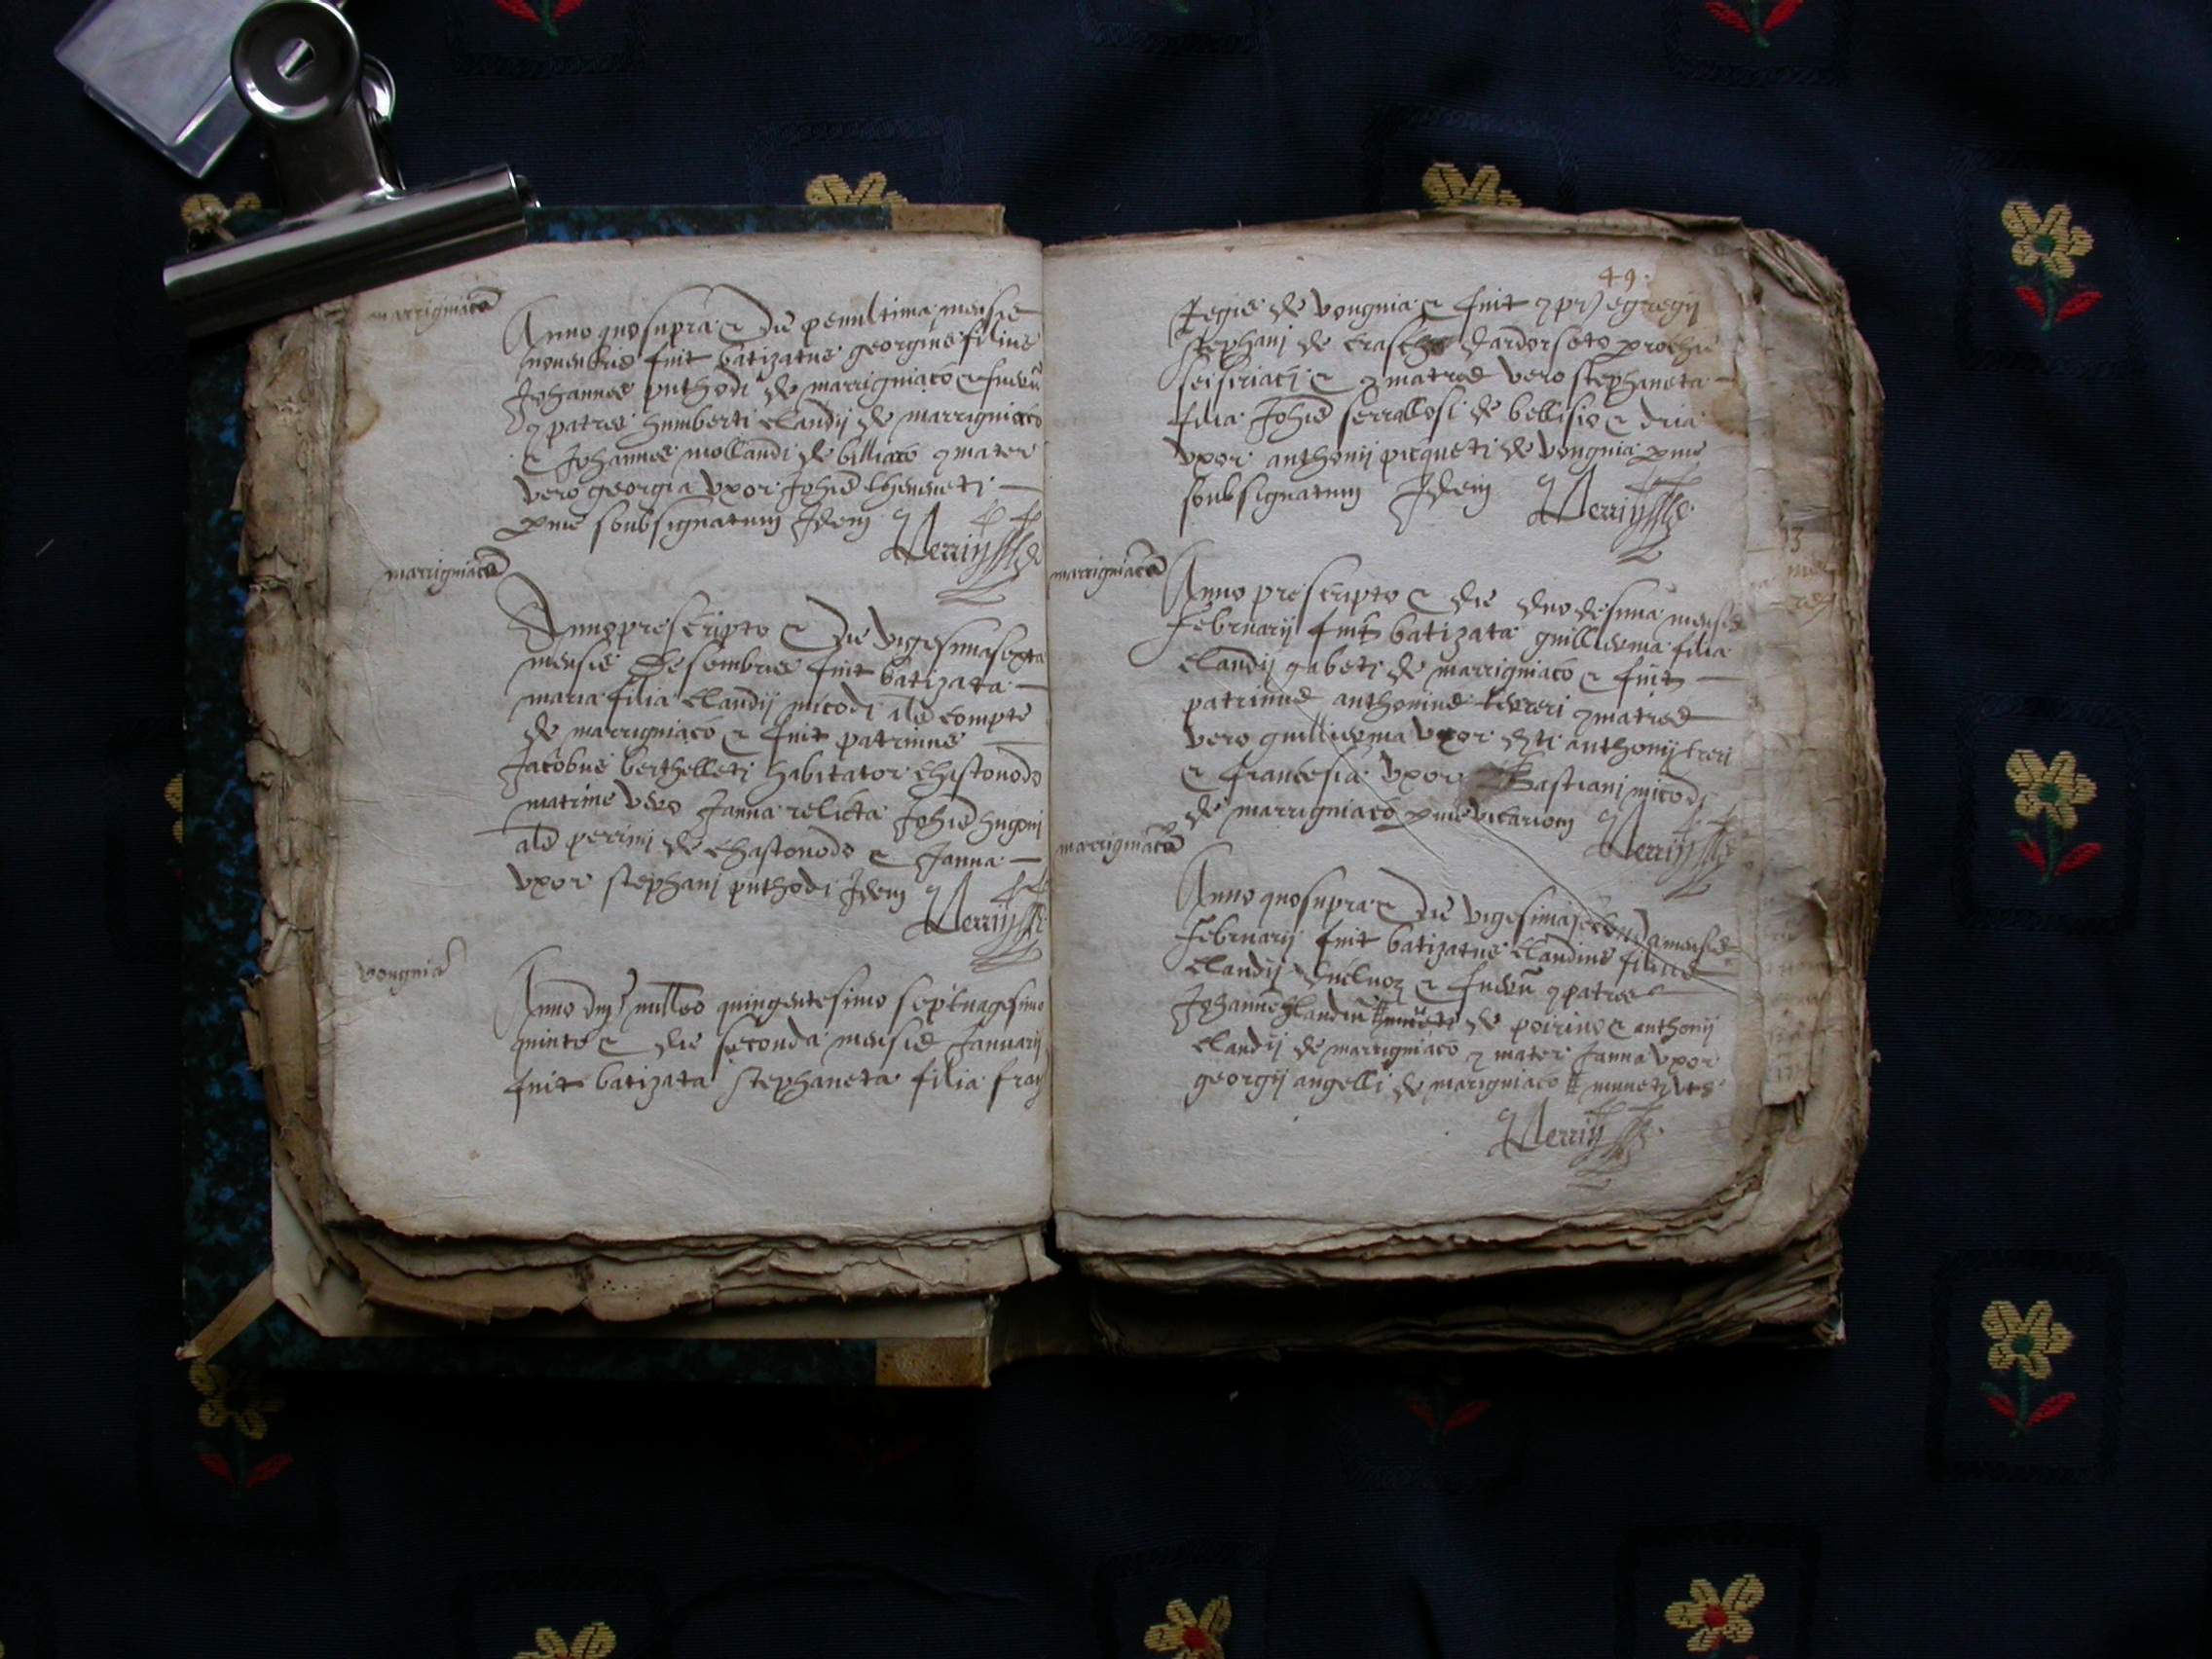 marrigniaco
Anno quo supra & die penultima mensis
novembris fuit batizatus georgius filius
Johannes puthodi de marrigniaco & fuerũ
9patres humberti claudij de marrigniaco
& Johannes mollandi de billiaco 9mater
vero georgia uxor Johis
pme soubsignatum Idem
marrigniaco
Anno prescripto & die vigesimasexta
mensis desembris fuit batizata
maria filia claudij nicodi als compte
de marrigniaco & fuit patrinus
Jacobus berthelleti habitator chastonodo
matrine vero Janna relicta Johis hugonj
als perrini de chastonodo & Janna
uxor stephanj puthodi Idem
vongnia
Anno dnj millmo quingentesimo septuagesimo
quinto & die seconda mensis Januarij
fuit batizata stephaneta filia fran
49.
Regis de vongnia & fuit 9pr egregij
stephanj de
& 9matres vero stephaneta
filia Johis de bellisio &
uxor anthonij picqueti de vongnia pme
soubsignatum Idem
marrigniaco
Anno prescripto & die duodesima mensis
februarij fuit batizata guillierma filia
claudij gabeti de marrigniaco & fuit
patrinus anthonius 9matres
vero guillierma uxor dti anthonij
& francesia uxor bastianj nicodi
de marrigniaco pme vicarium
marrigniaco
Anno quo supra & die vigesimaseconda mensis
februarij fuit batizatus claudius filius
claudij & fuerũ 9patres
de poirino & anthonij
claudij de marrigniaco 9mater Janna uxor
georgij angelli de marigniaco